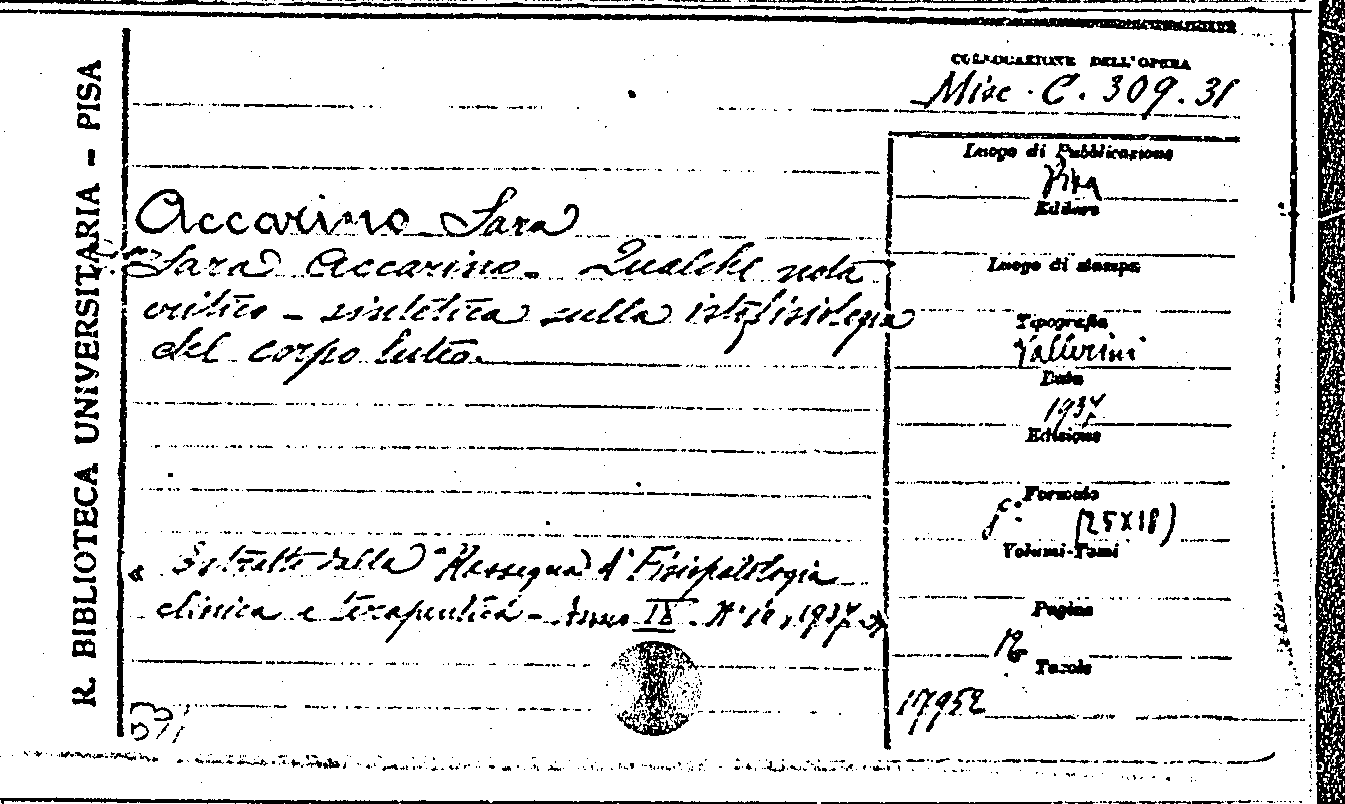 R. BIBLIOTECA UNIVERSITARIA - PISA
COLLOCAZIONE DELL'OPERA
Misc. C. 309. 31
Accarino Sara
Sara Accarino. Qualche nota
critico - sintetica sulla istofisiologia
del corpo luteo.
« Estratto dalla "Rassegna di Fisiopatologia
clinica e terapeutica - Anno IX. N° 10, 1937. »
Luogo di Pubblicazione
Pisa
Editore
Luogo di stampa
Tipografia
Vallerini
Data
1937
Edizione
Formato
(25X18)
Volumi-Tomi
Pagine
Tavole
17952